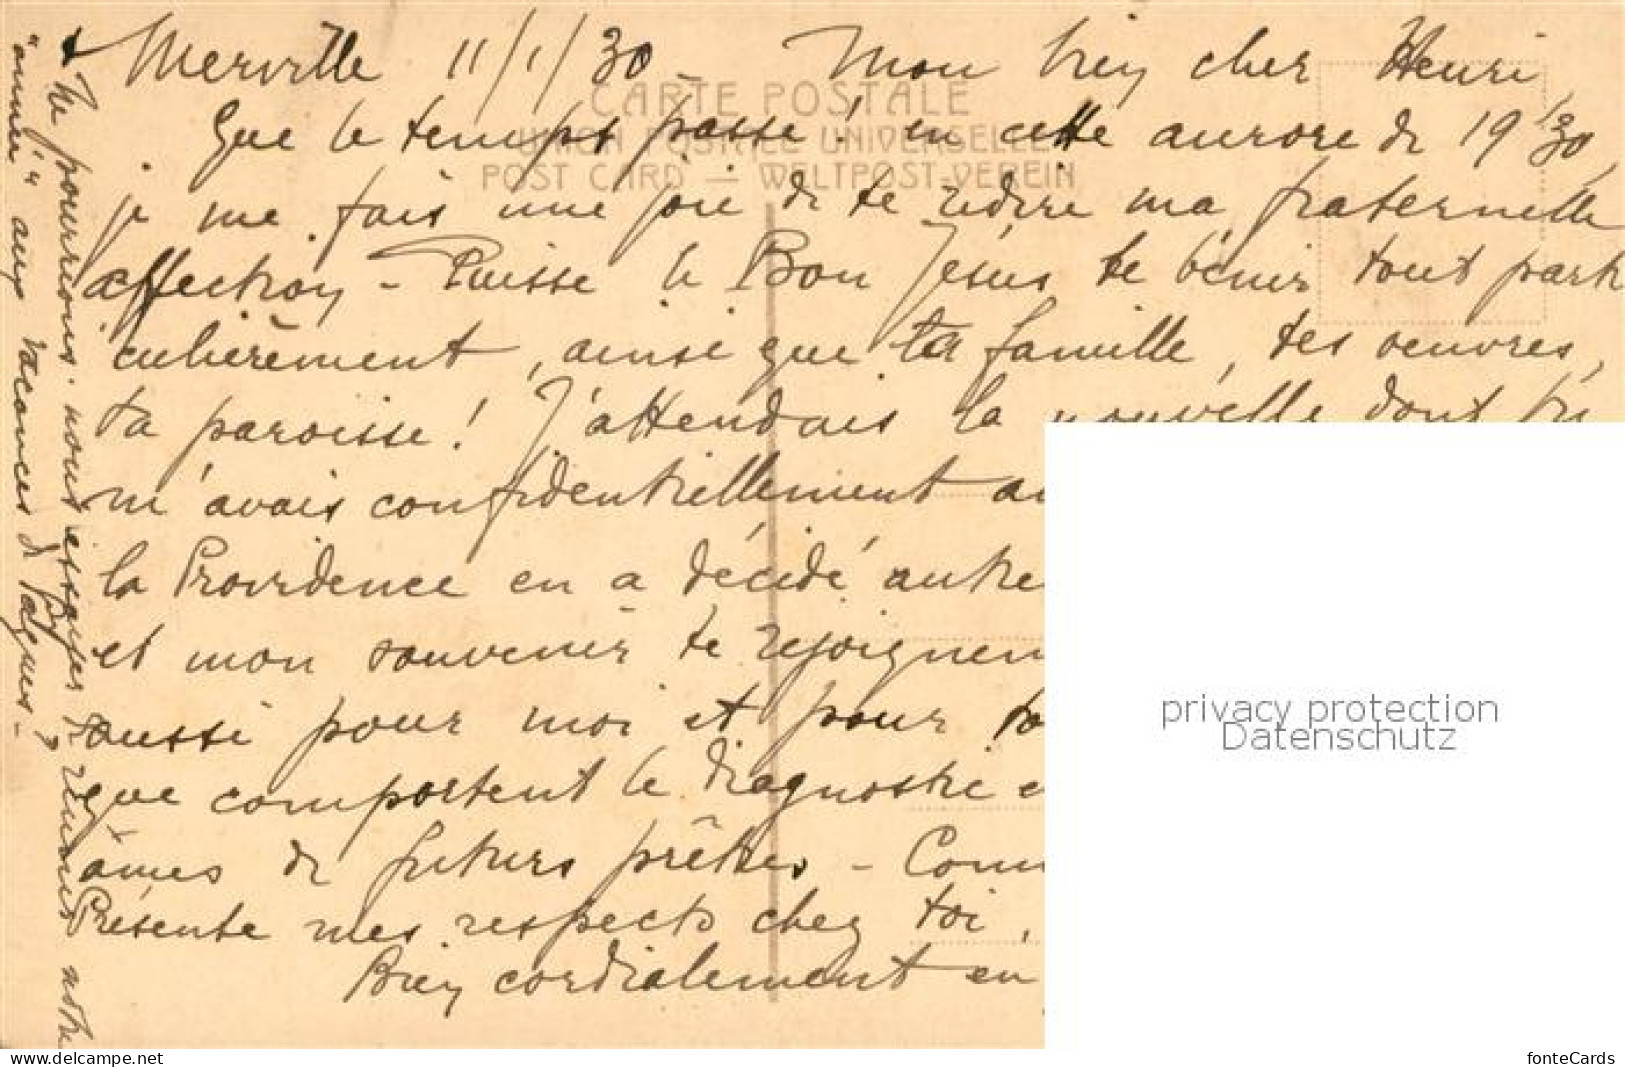 Merville 11/1/30 - Mon bien cher Henri,
CARTE POSTALE
Que le temps passe! en cette aurore de 1930,
UNION POSTALE UNIVERSELLE
POST CARD — WELTPOST-VEREIN
je me fais une joie de te redire ma fraternelle
affection - Puisse le Bon Jésus te bénir tout parti
culièrement, ainsi que ta famille, tes oeuvres,
ta paroisse! J'attendais la nouvelle dont tu
m'avais confidentiellement
la Providence en a décidé autre
et mon souvenir te rejoignen
aussi pour moi et pour
que comportent le diagnostic
âmes de futurs prêtres - Com
Présente mes respects chez toi,
Bien cordialement en
+ Ne pourrions-nous essayer de réunir notre
"année" aux vacances de Pâques - ?
privacy protection
Datenschutz
www.delcampe.net
fonteCards